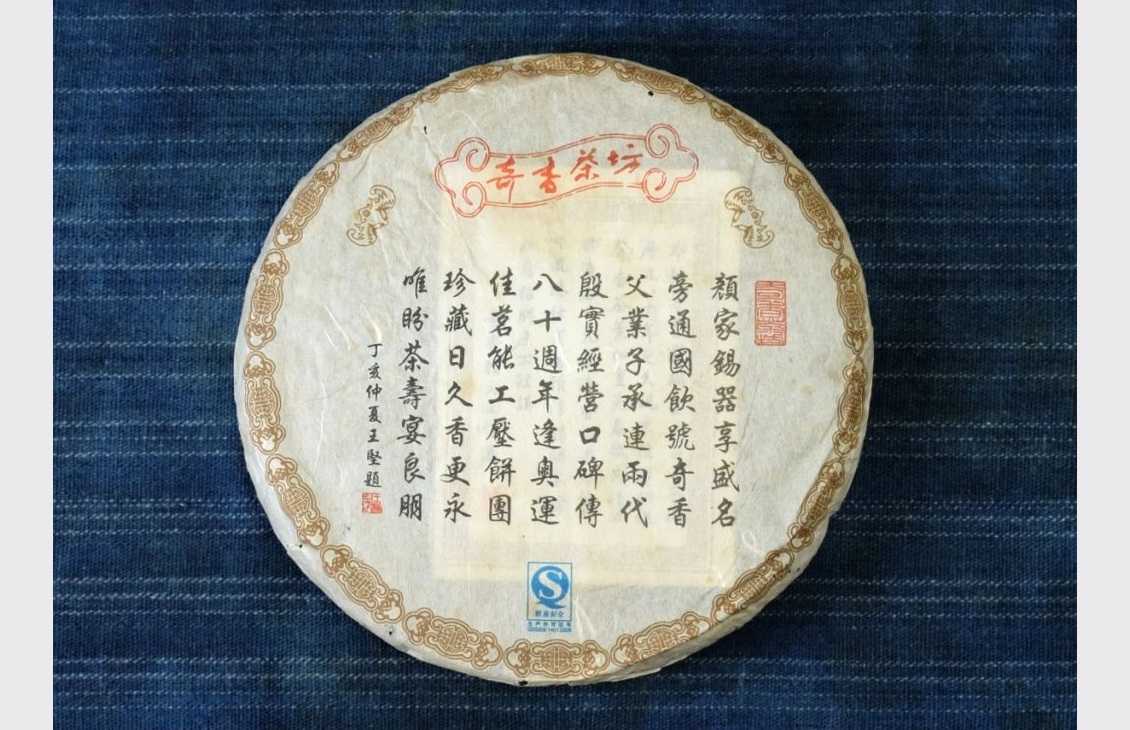 奇香茶坊
顏家錫器享盛名
旁通國飲號奇香
父業子承連兩代
殷實經營口碑傳
八十週年逢奧運
佳茗能工壓餅團
珍藏日久香更永
唯盼茶壽宴良朋
丁亥仲夏王堅題